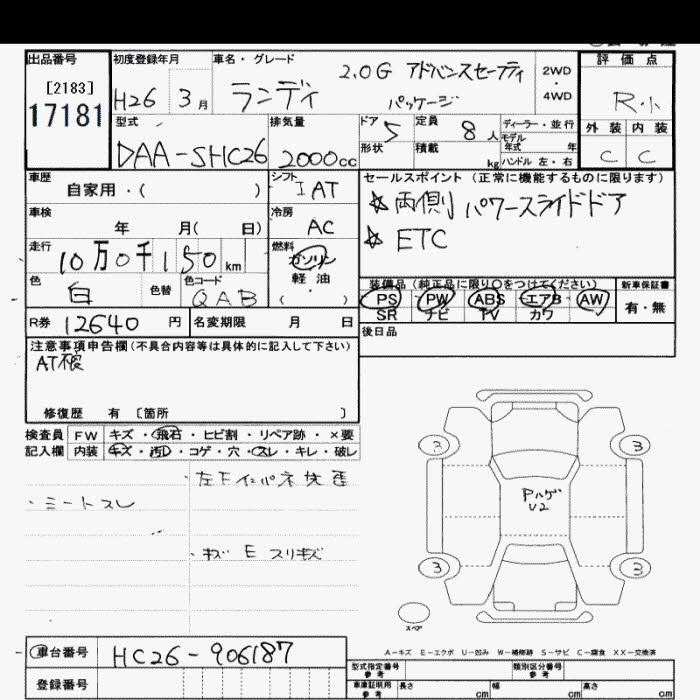 出品番号 初度登録年月 車名・グレード 評価点
[2183] 17181
H26 3月 ランディ 2.0G アドバンスセーフティ パッケージ 2WD・4WD R・小
型式 排気量 ドア 5 定員 8人 ディーラー・並行 外装 内装
DAA-SHC26 2000cc 形状 積載 kg モデル年式 年 ハンドル 左・右 C C
車歴 自家用・( ) シフト IAT セールスポイント(正常に機能するものに限ります)
☆両側パワースライドドア
車検 年 月( 日) 冷房 AC
☆ETC
走行 10万0千150km 燃料 ガソリン 軽油 ( )
色 白 色替 色コード QAB
装備品(純正品に限り○をつけてください) 新車保証書
PS PW ABS エアB AW 有・無
SR ナビ TV カワ
R券 12640円 名変期限 月 日 後日品
注意事項申告欄(不具合内容等は具体的に記入して下さい)
AT
修復歴 有 [箇所 ]
検査員 FW キズ・飛石・ヒビ割・リペア跡・×要
記入欄 内装 キズ・汚レ・コゲ・穴・スレ・キレ・破レ
左下インパネ
・ミートスレ
・キズ E スリキズ
3 3
Pハゲ
U2
3 3
スペア
A-キズ E-エクボ U-凹み W-補修跡 S-サビ C-腐食 XX-交換済
車台番号 HC26-906187
型式指定番号 参考 類別区分番号 参考
登録番号 車庫証明用 参考 長さ cm 幅 cm 高さ cm